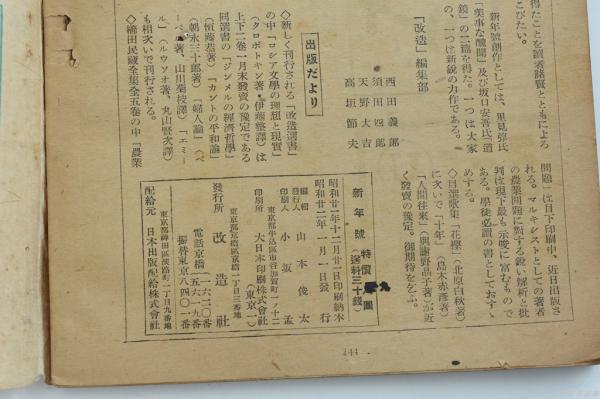 得たことを讀者諸賢とともによろ
こびたい。
新年號創作としては、里見弴氏
「美事な醜聞」及び坂口安吾氏「道
鏡」の二篇を得た。一つは大家
の、一つは新鋭の力作である。
「改造」編集部
西田義郎
須田四郎
天野大吉
高垣節夫
出版だより
◇新しく刊行される「改造選書」
の中「ロシア文學の理想と現實」
(クロポトキン著・伊藤整譯)は
上下二卷一月末發賣の豫定である
同選書の「ジンメルの經濟哲學」
(恒藤恭著)「カントの平和論」
(朝永三十郎著)「婦人論」(ベ
ーベル著、山川菊枝譯)「エミー
ル」(ルウソオ著、丸山賢次譯)
も相次いで刊行される。
◇櫛田民藏全集全五卷の中「農業
問題」は目下印刷中、近日出版さ
れる。マルキシストとしての著者
の農業問題に對する鋭い解析と批
判は現下最も示唆に富むもので
ある。學徒必讀の書としておすゝ
めする。
◇自選歌集「花樫」(北原白秋著)
に次いで「十年」(島木赤彥著)
「人間往來」(與謝野晶子著)が近
く發賣の豫定。御期待を乞ふ。
新年號
特價
九
圓
(送料三十錢)
昭和廿一年十二月廿一日印刷納本
昭和廿二年一月一日發行
編輯
發行人
山本俊太
印刷人
小坂孟
東京都牛込區市谷加賀町一ノ十二
印刷所
大日本印刷株式會社
(東京一)
東京都京橋區京橋一丁目三番地
發行所
改造社
電話京橋
一六二〇番
五六一九番
振替東京八四〇二番
東京都神田區淡路町二丁目九番地
配給元
日本出版配給株式會社
144